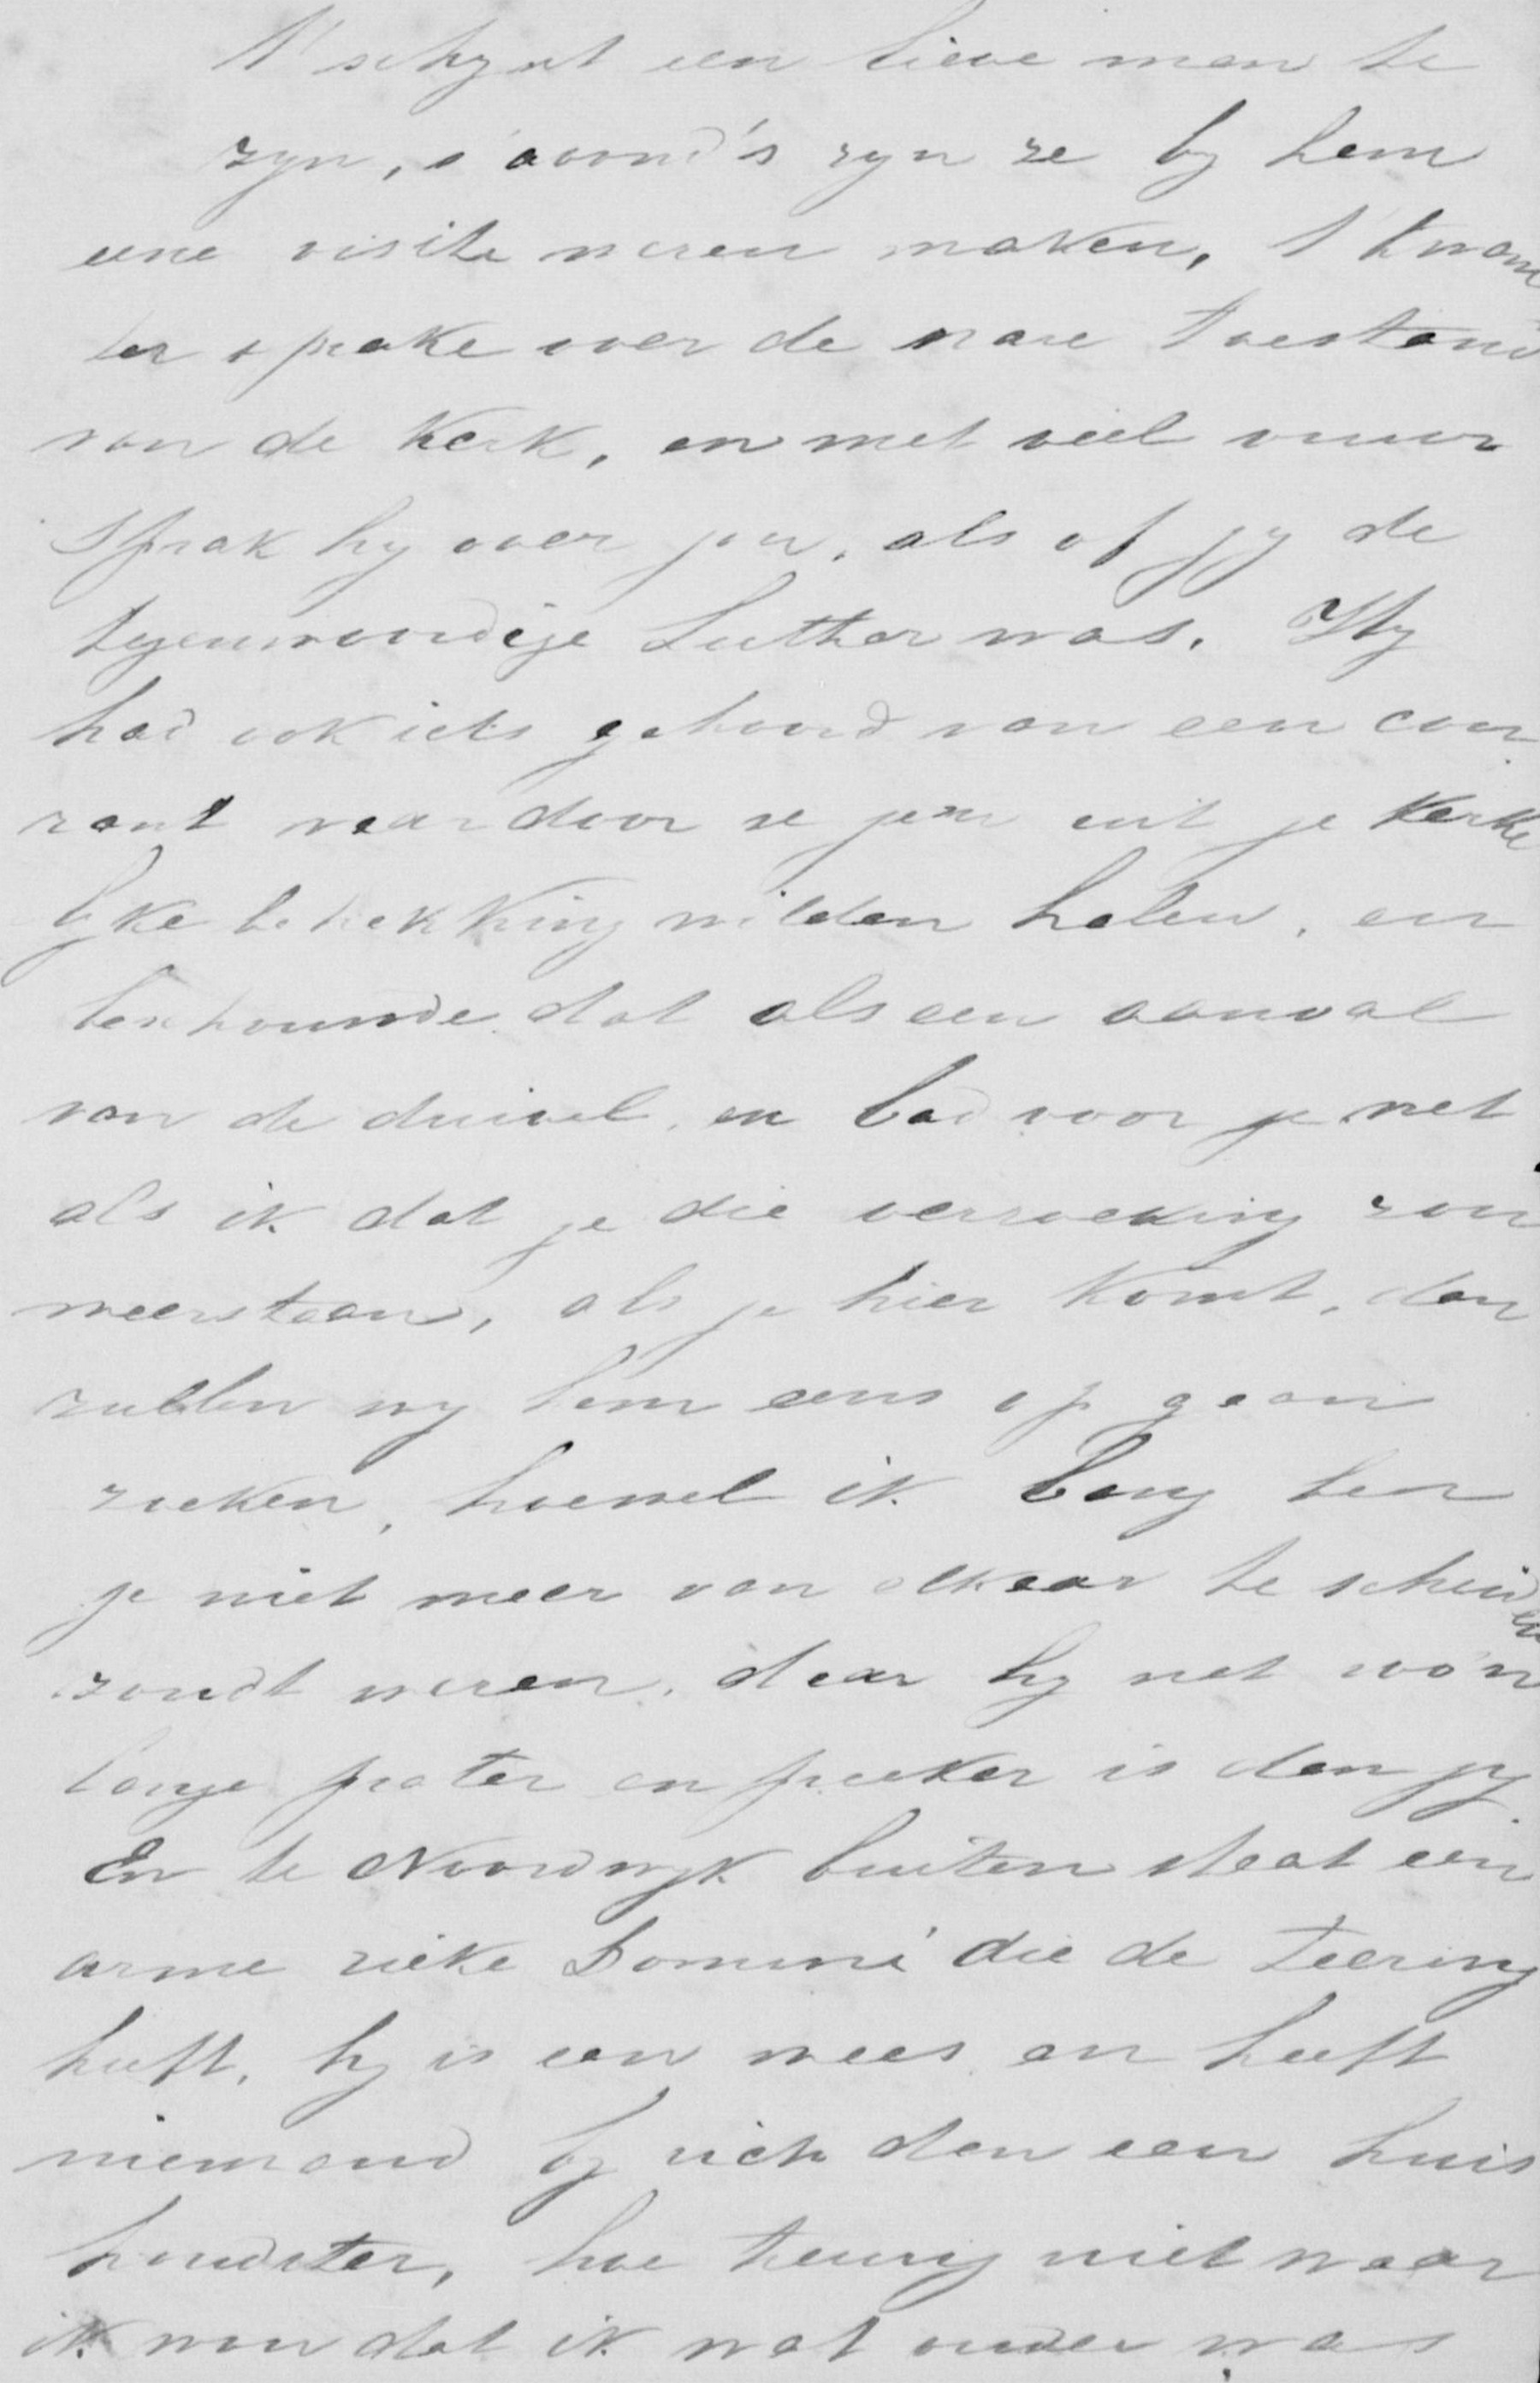 't schynt een lieve man te
zyn, s'avond's zyn ze by hem
eene visite weren maken, 't kwam
ter sprake over de nare toestand
van de Kerk, en met veel vuur
sprak hy over jou, als of jy de
tegenwoordige Luther was. Hy
had ook iets gehoord van een cour
rant waardoor ze jou uit je Kerke
lyke betrekking wilden halen, en
beschouwde dat als een aanval
van de duivel, en bad voor je net
als ik dat je die verzoeking zou
weerstaan, als je hier komt, dan
zullen wy hem eens op gaan
zoeken, hoewel ik bang ben
je niet meer van elkaar te scheiden
zoudt weren, daar hy net zo'n
lange prater en preeker is dan jy
En te Noordwyk buiten staat een
arme zieke Dominé die de teering
heeft, hy is een wees en heeft
niemand by zich dan een huis
houdster, hoe treurig niet waar
ik wou dat ik wat ouder was